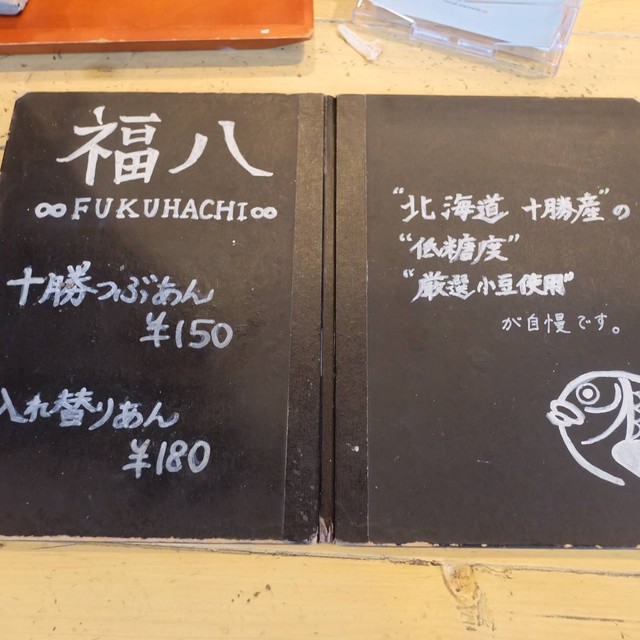 福八
∞FUKUHACHI∞
十勝つぶあん
¥150
入れ替りあん
¥180
"北海道 十勝産"の
"低糖度"
"厳選小豆使用"
が自慢です。